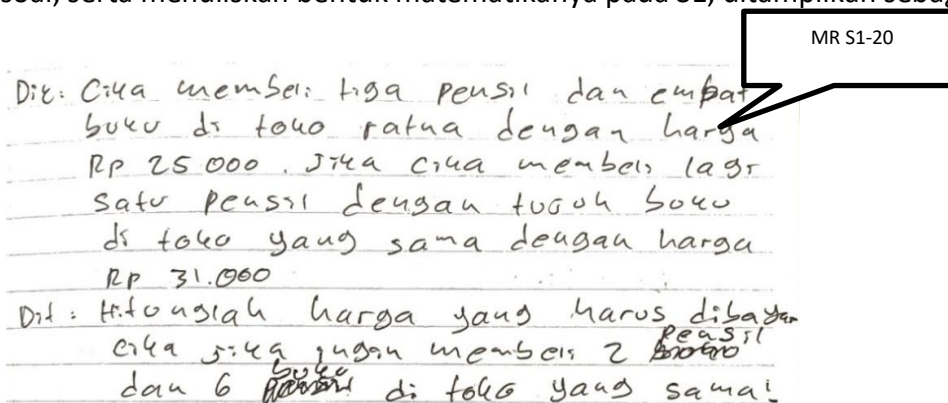 soal, serta menuliskan bentuk matematikanya pada S1, ditampilkan sebag
MR S1-20
Dik: Cika membeli tiga pensil dan empat
buku di toko ratna dengan harga
Rp 25 000. Jika cika membeli lagi
satu pensil dengan tujuh buku
di toko yang sama dengan harga
Rp 31.000
Dit: Hitunglah harga yang harus dibayar
cika jika ingin membeli 2 pensil
dan 6 buku di toko yang sama!